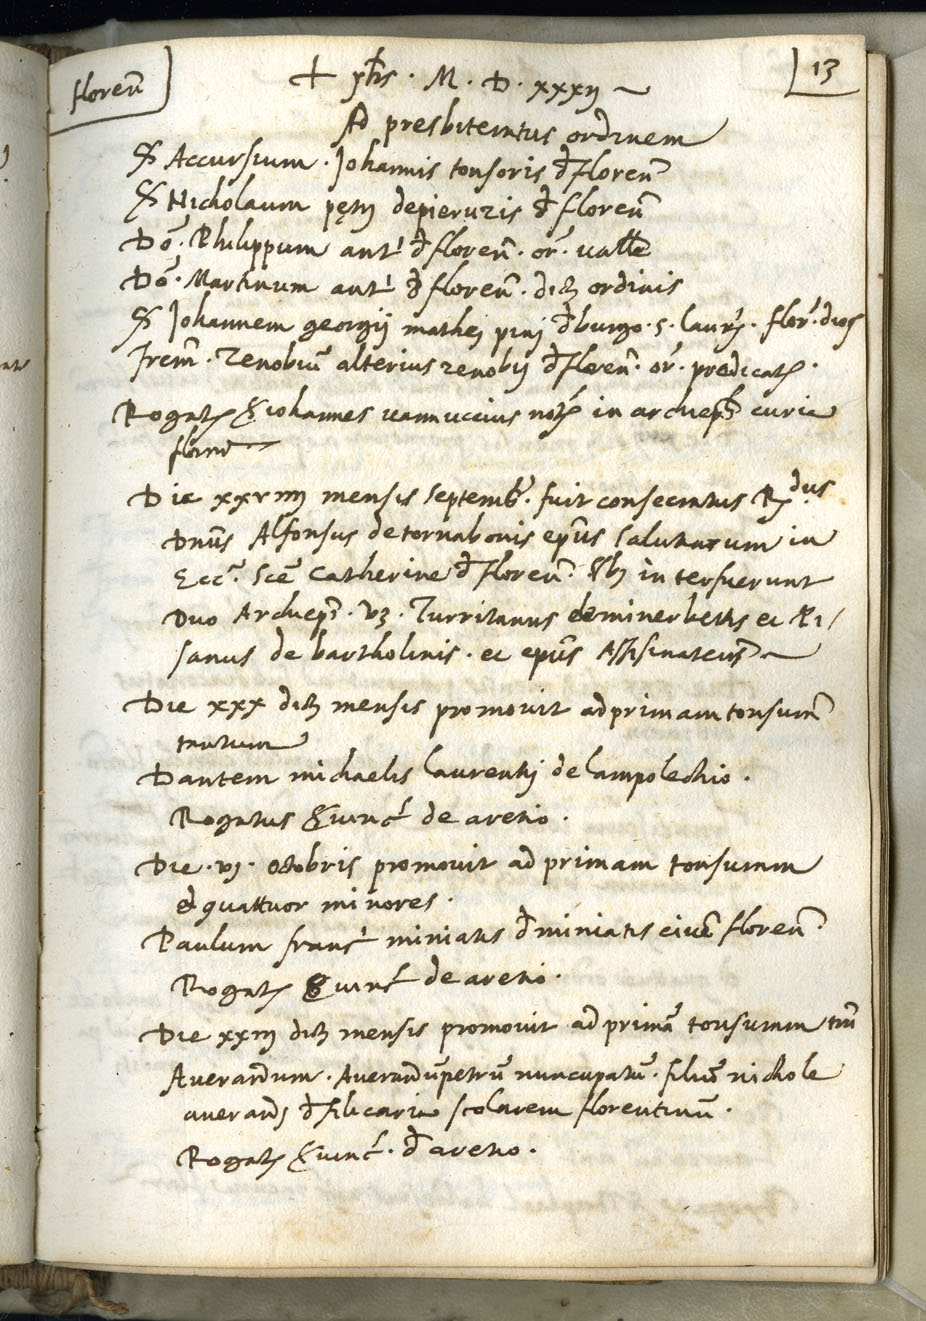 floreñ
13
+ yhs · M · D · xxxij
Ad presbiteratus ordinem
S Accursium · Johannis tonsoris đ floreñ
S Nicholaum petrj depieruzis đ floreñ
Dõ · Philippum ant' đ floreñ · or̃ · valle
Dõ · Martinum ant' đ floreñ · dictj ordinis
S Johannem georgij mathej pinj đ burgo · S · laurẽ · flor̃ · dioς
Frem̃ · Zenobiũ alterius zenobij đ floreñ · or̃ · predicatς ·
Rogatς S iohannes vannuccius notς in archiep̃ curia
floreñ
Die xxviiij mensis septemb̃ · fuit consecratus Rdus
Dnũs Alfonsus de tornabonis ep̃us saluttiarum in
Ecc̃ · Scẽ Catherine đ floreñ · Vbj interfuerunt
Duo Archiep̃i · vz · Turritanus deminerbettis et Pi/
sanus de bartholinis · et ep̃us Assisinateñ
Die xxx dictj mensis promovit ad primam tonsuram
tantum
Dantem michaelis laurentij de lampolechio ·
Rogatus S vinc̃ de aretio ·
Die · vj · octobris promovit ad primam tonsuram
et quattuor minores ·
Paulum franc' miniatis đ miniatis civẽ floreñ
Rogatς S vinc̃ de aretio ·
Die xxiij dictj mensis promovit ad primã tonsuram tm̃
Averardum · Averardũpetrũ nuncupatũ · filiũ nichole
averardj đ filicaria scolarem florentinũ ·
Rogatς S vinc̃ · đ aretio ·